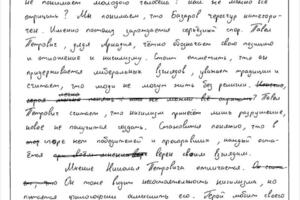 не понимает молодого человека? или не может всё
отрицать? Мы понимаем, что Базаров чересчур категори-
чен. Именно поэтому зарождается серьёзный спор. Павел
Петрович, дядя Аркадия, чётко обозначает свою позицию
и отношение к нигилизму. Стоит отметить, что он
придерживается либеральных взглядов, уважает традиции и
считает, что люди не могут жить без религии.
Павел
Петрович считает, что нигилизм принесёт лишь разрушение,
новое не получится создать. Становится понятно, что в
споре нет победителей и проигравших, каждый оста-
ётся верен своим взглядам.
Мнение Николая Петровича отличается.
Он тоже видит несостоятельность нигилизма, но
пытается осмыслить его. Герой любит своего